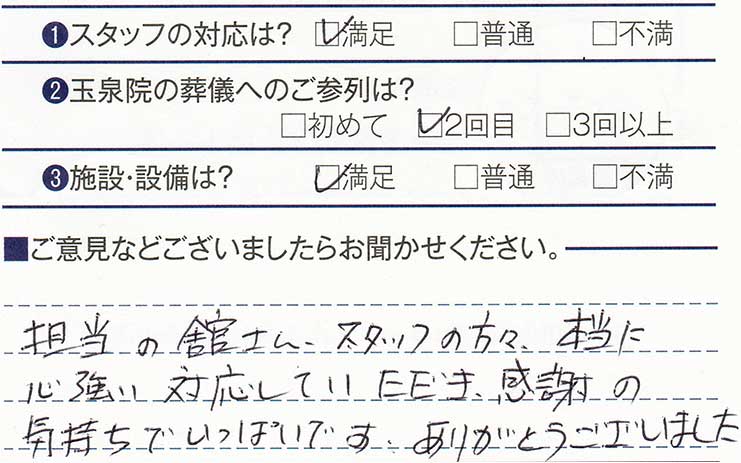 ❶スタッフの対応は? ☑満足 □普通 □不満
❷玉泉院の葬儀へのご参列は?
□初めて ☑2回目 □3回以上
❸施設・設備は? ☑満足 □普通 □不満
■ご意見などございましたらお聞かせください。
担当の舘さん、スタッフの方々、本当に
心強い対応していただき、感謝の
気持ちでいっぱいです。ありがとうございました